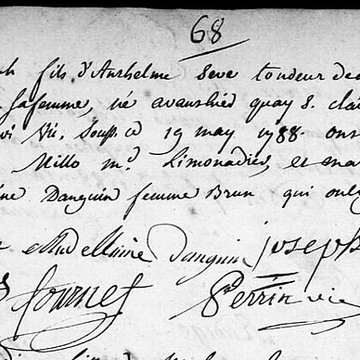 68
fils d'Anthelme Seve tondeur de
sa femme, né avant hier quay S. clai
Vic. Souss. ce 19 may 1788. ont
Millo md. Limonadier, et ma
Danguin femme Brun qui ont
Madelleine danguin joseph
fournet Perrin vic